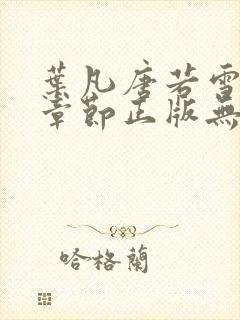 葉凡唐若雪
章節正版無
哈格蘭